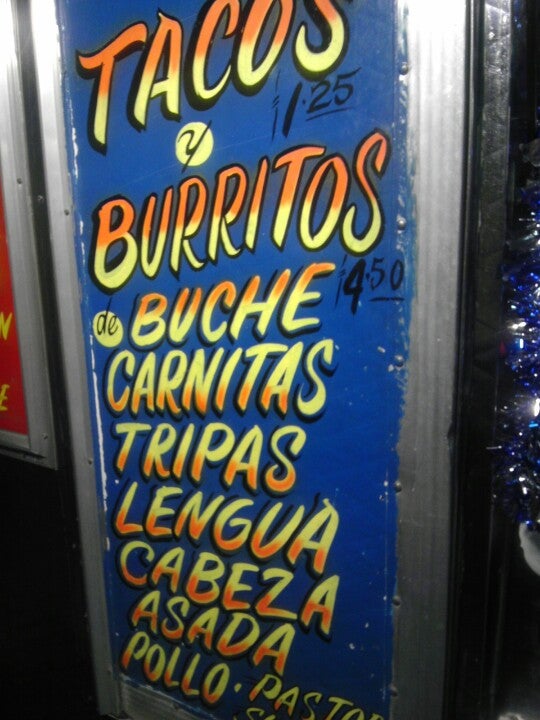 TACOS
1.25
y
BURRITOS
4.50
de BUCHE
CARNITAS
TRIPAS
LENGUA
CABEZA
ASADA
POLLO · PASTOR